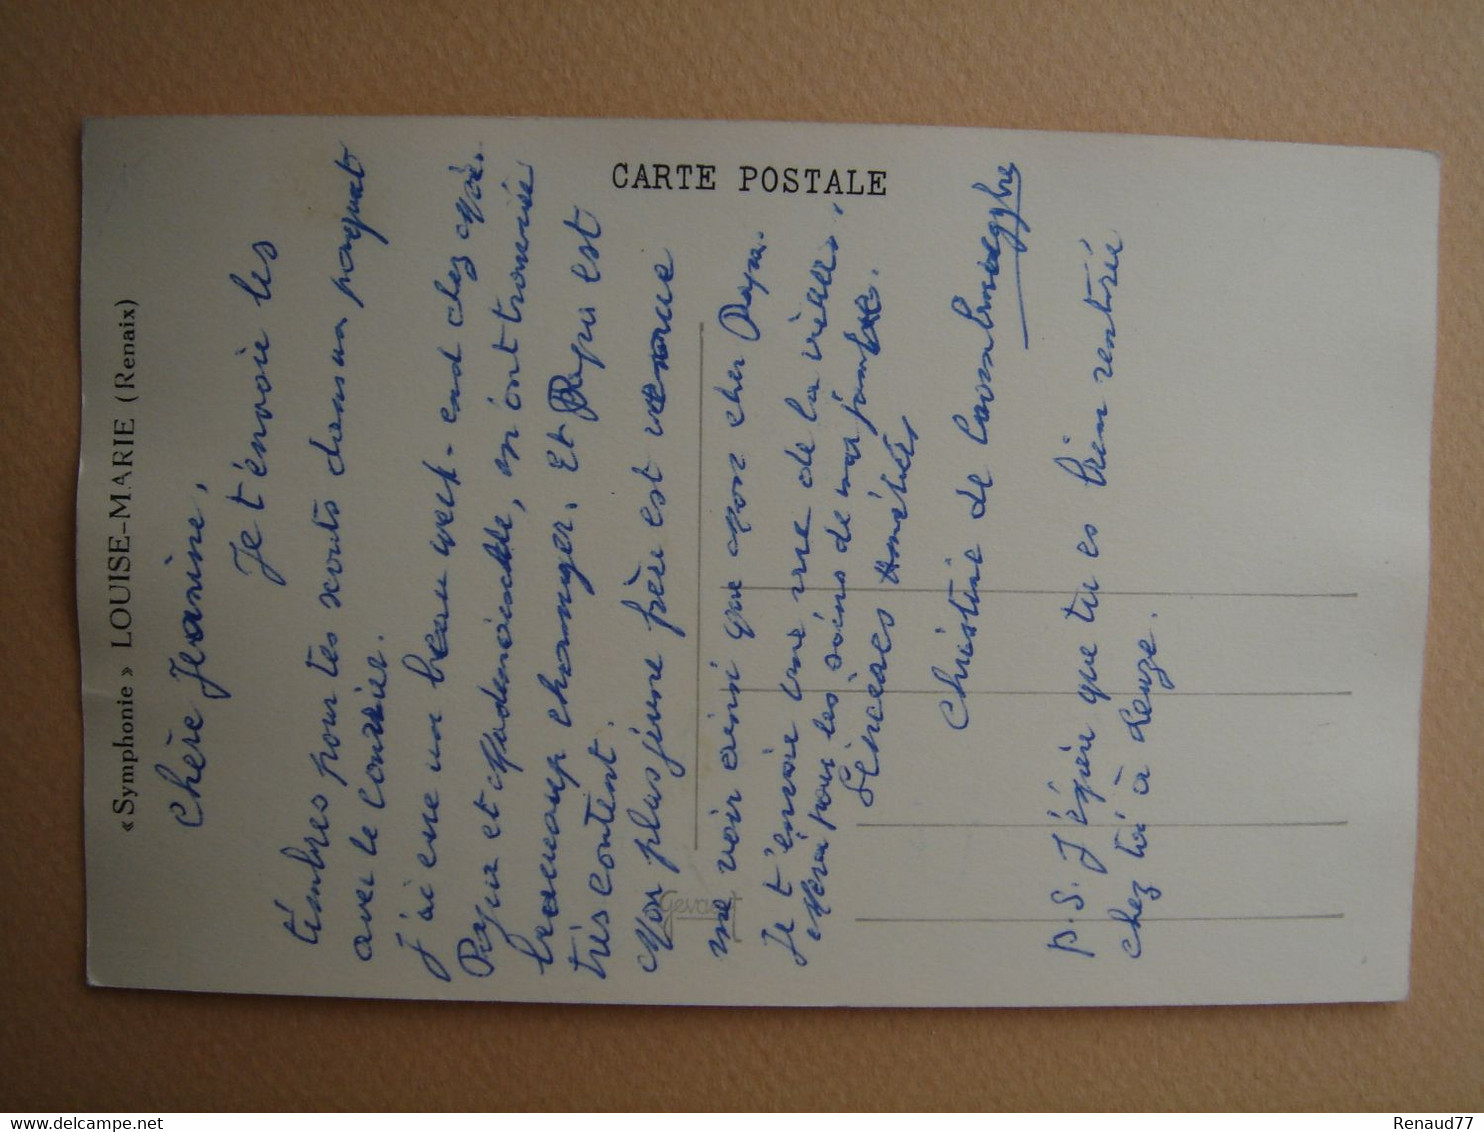 « Symphonie » LOUISE-MARIE (Renaix)
CARTE POSTALE
Gevaert
Chère Jeanine,
Je t'envoie les
timbres pour tes scouts dans un paquet
avec le courier.
J'ai eue un beau week-end chez Moi.
Papa et Mademoiselle, m'ont trouvée
beaucoup changer. Et Papa est
très content.
Mon plus jeune frère est venue
me voir ainsi que Mon cher Papa.
Je t'envoie une vue de la vielle,
Merci pour les soins de ma jambe.
Sincères Amitiés
Christine de
P.S. J'éspère que tu es bien rentrée
chez toi à Leuze.
Renaud77
delcampe.net